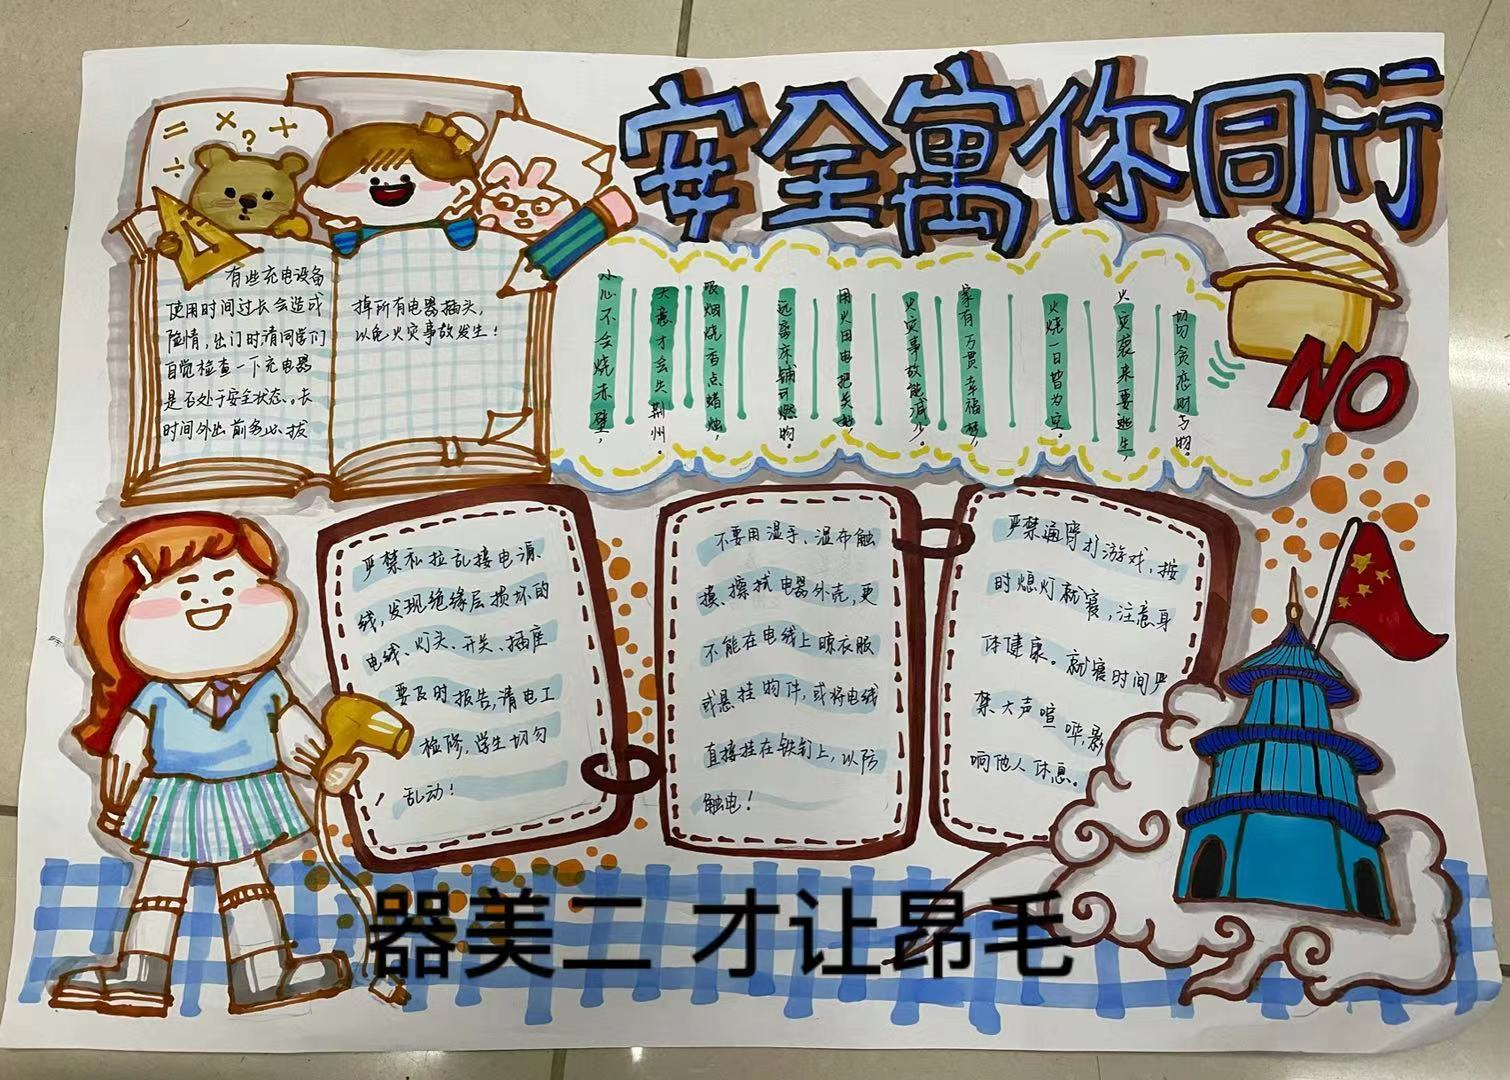 安全寓你同行
= × ? +
÷
有些充电设备
使用时间过长会造成
险情，出门时请同学们
自觉检查一下充电器
是否处于安全状态。长
时间外出前务必拔
掉所有电器插头，
以免火灾事故发生！
小心不会烧赤壁，
大意才会失荆州。
吸烟烧香点蜡烛，
远离床铺可燃物。
用火用电把关好，
火灾事故能减少。
家有万贯幸福梦，
火烧一日皆为空。
火灾袭来要逃生，
切勿贪恋财与物。
NO
严禁私拉乱接电源
线，发现绝缘层损坏的
电线、灯头、开关、插座
要及时报告，请电工
检修，学生切勿
乱动！
不要用湿手、湿布触
摸、擦拭电器外壳，更
不能在电线上晾衣服
或悬挂物件，或将电线
直接挂在铁钉上，以防
触电！
严禁通宵打游戏，按
时熄灯就寝，注意身
体健康。就寝时间严
禁大声喧哗，影
响他人休息。
器美二 才让昂毛